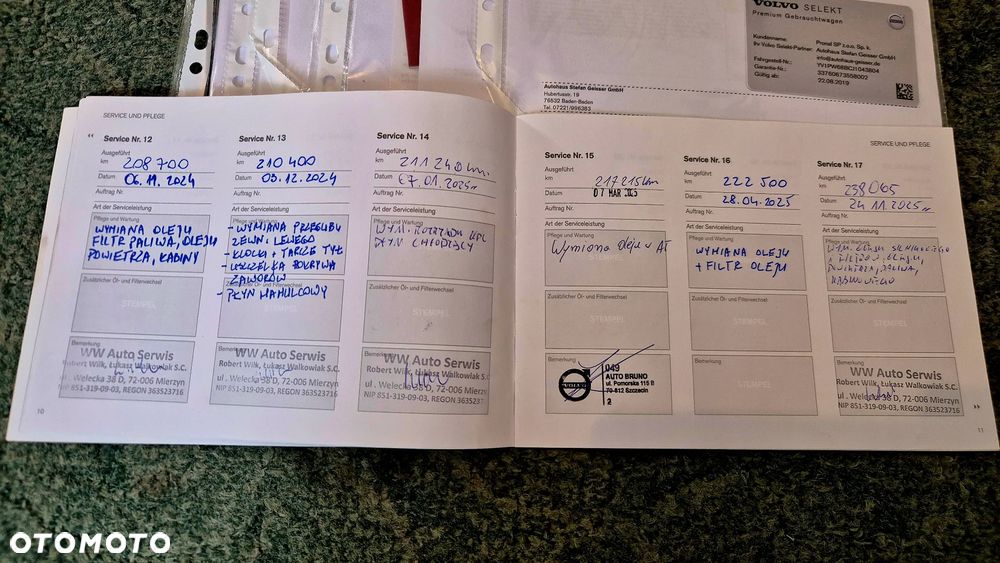 VOLVO SELEKT
Premium Gebrauchtwagen
Kundenname: Pronal SP z.o.o. Sp. k.
Ihr Volvo Selekt-Partner: Autohaus Stefan Geisser GmbH
info@autohaus-geisser.de
Fahrgestell-Nr.: YV1PW68BCJ1043804
Garantie-Nr.: 33760673558002
Gültig ab: 22.08.2019
Autohaus Stefan Geisser GmbH
Hubertusstr. 19
76532 Baden-Baden
Tel. 07221/996383
SERVICE UND PFLEGE
Service Nr. 12
Ausgeführt
km 208 700
Datum 06.11.2024
Auftrag Nr.
Art der Serviceleistung
Pflege und Wartung
WYMIANA OLEJU
FILTR PALIWA, OLEJU
POWIETRZA, KABINY
Zusätzlicher Öl- und Filterwechsel
Bemerkung
WW Auto Serwis
Robert Wilk, Łukasz Walkowiak S.C.
ul. Welecka 38 D, 72-006 Mierzyn
NIP 851-319-09-03, REGON 363523716
10
Service Nr. 13
Ausgeführt
km 210 400
Datum 03.12.2024
Auftrag Nr.
Art der Serviceleistung
Pflege und Wartung
- WYMIANA PRZEGUBU
ZEWN. LEWEGO
- KLOCKI + TARCZE TYŁ
- USZCZELKA POKRYWA
ZAWORÓW
- PŁYN HAMULCOWY
Zusätzlicher Öl- und Filterwechsel
Bemerkung
WW Auto Serwis
Robert Wilk, Łukasz Walkowiak S.C.
ul. Welecka 38 D, 72-006 Mierzyn
NIP 851-319-09-03, REGON 363523716
Service Nr. 14
Ausgeführt
km 211 240 km.
Datum 07.01.2025r
Auftrag Nr.
Art der Serviceleistung
Pflege und Wartung
WYM. ROZRZĄDU KPL
PŁYN CHŁODZĄCY
Zusätzlicher Öl- und Filterwechsel
STEMPEL
Bemerkung
WW Auto Serwis
Robert Wilk, Łukasz Walkowiak S.C.
ul. Welecka 38 D, 72-006 Mierzyn
NIP 851-319-09-03, REGON 363523716
SERVICE UND PFLEGE
Service Nr. 15
Ausgeführt
km 217215km
Datum 07 MAR 2025
Auftrag Nr.
Art der Serviceleistung
Pflege und Wartung
Wymiana oleju w AT
Zusätzlicher Öl- und Filterwechsel
STEMPEL
Bemerkung
VOLVO
049
AUTO BRUNO
ul. Pomorska 115 B
70-812 Szczecin
2
Service Nr. 16
Ausgeführt
km 222 500
Datum 28.04.2025
Auftrag Nr.
Art der Serviceleistung
Pflege und Wartung
WYMIANA OLEJU
+ FILTR OLEJU
Zusätzlicher Öl- und Filterwechsel
STEMPEL
Bemerkung
STEMPEL
Service Nr. 17
Ausgeführt
km 238065
Datum 24.11.2025r
Auftrag Nr.
Art der Serviceleistung
Pflege und Wartung
WYM. OLEJU SILNIKOWEGO
+ FILTRÓW, OLEJU,
POWIETRZA, PALIWA,
KABINOWEGO
Zusätzlicher Öl- und Filterwechsel
STEMPEL
Bemerkung
WW Auto Serwis
Robert Wilk, Łukasz Walkowiak S.C.
ul. Welecka 38 D, 72-006 Mierzyn
NIP 851-319-09-03, REGON 363523716
11
OTOMOTO